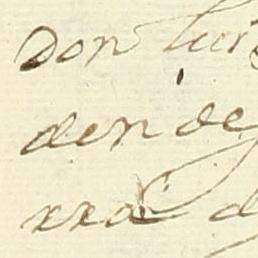 Don Luis
den de
rra d